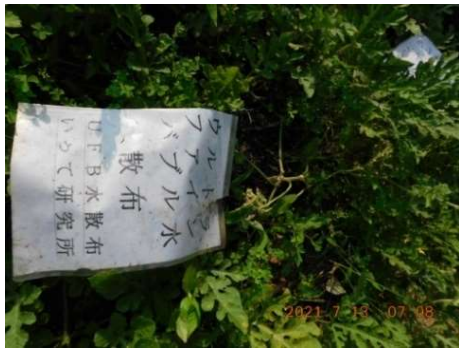 ウルトラ
ファイン
バブル水
散布
UFB水散布
いって研究所
2021.7.13 07:08